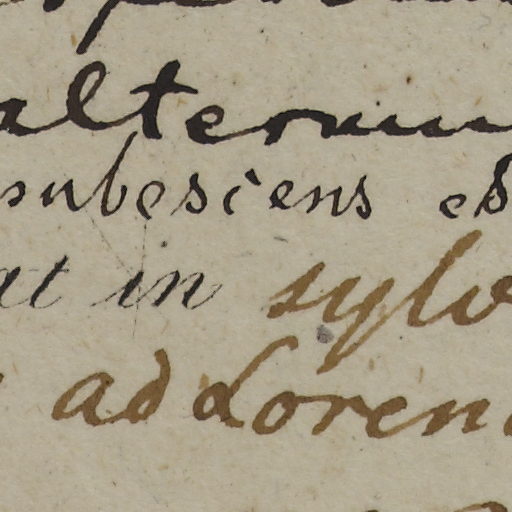 alterum
pubescens es
at in sylv
ad Loren